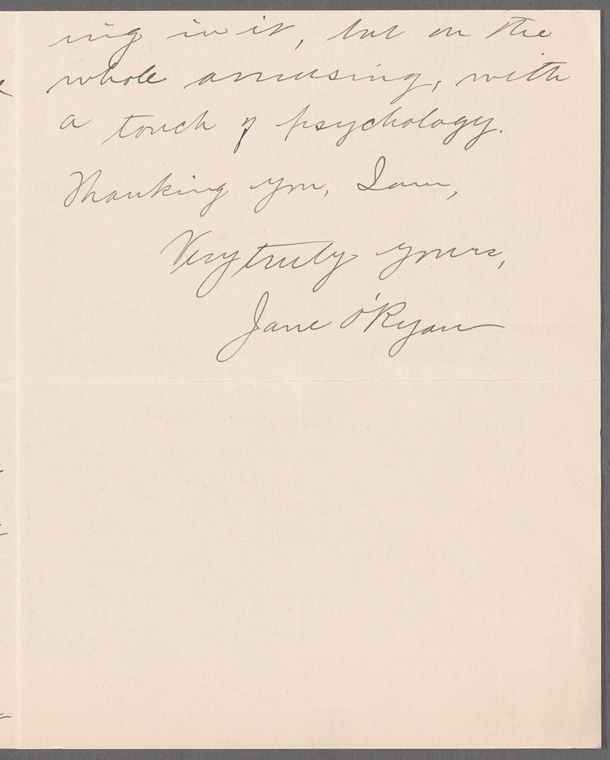 ing in it, but on the
whole amusing, with
a touch of psychology.
Thanking you, I am,
Very truly yours,
Jane O'Ryan